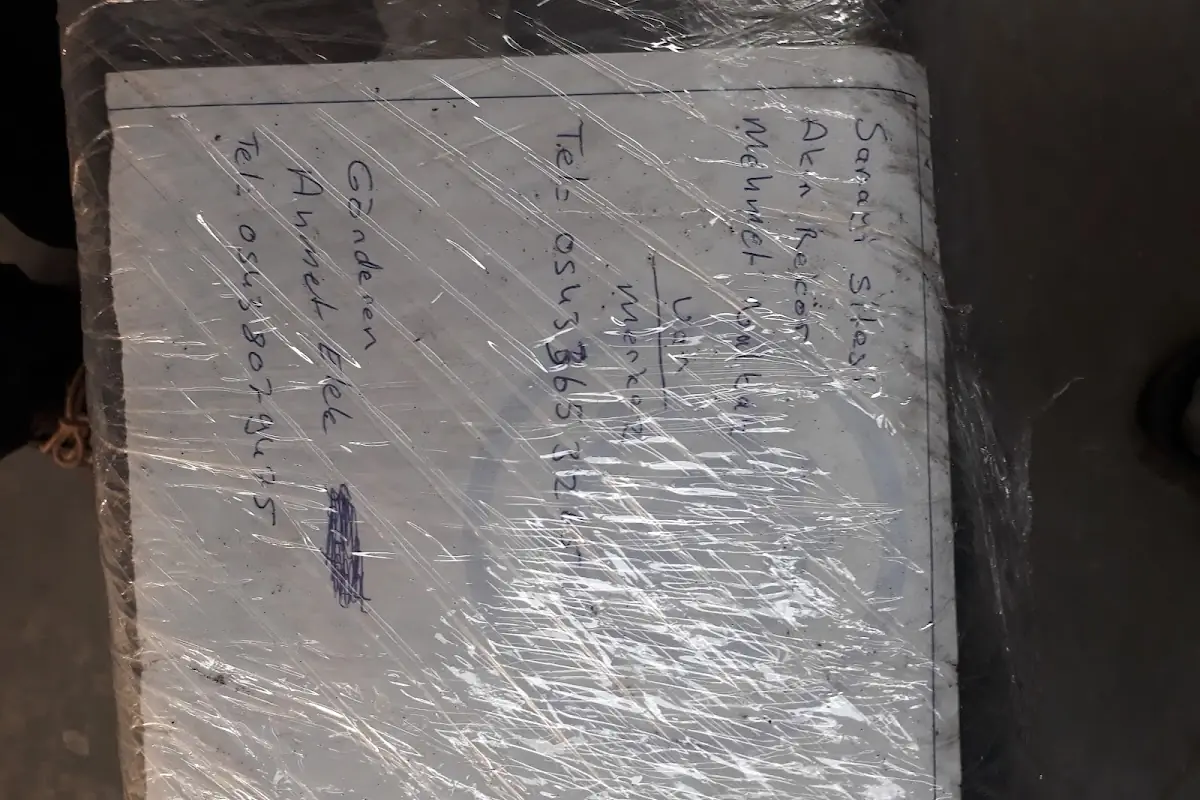 Sanayi Sitesi
Akın Rektör
Mehmet
Van
Merkez
Tel: 0543365 32
Gönderen
Ahmet Elek
Tel: 05438079475